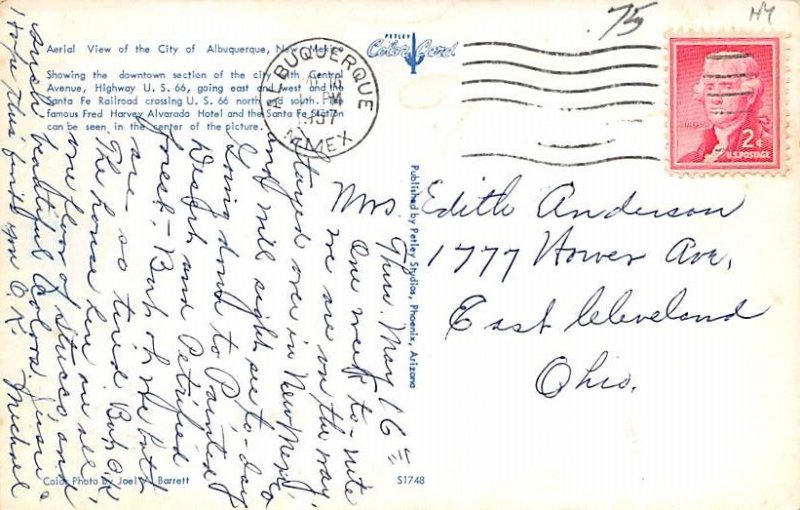 75
NY
Aerial View of the City of Albuquerque, New Mexico
Showing the downtown section of the city with Central
Avenue, Highway U. S. 66, going east and west and the
Santa Fe Railroad crossing U. S. 66 north and south. The
famous Fred Harvey Alvarado Hotel and the Santa Fe Station
can be seen in the center of the picture.
PETLEY
Color Card
ALBUQUERQUE
PM
1957
N. MEX
2¢
U.S. POSTAGE
Mrs. Edith Anderson
1777 Hower Ave,
East Cleveland
Ohio.
Thur. May 16th
One week to-nite
we are on the way,
Stayed over in New Mexico
and will sight see to-day
Going down to Painted
Desert and Petrified
forest - But oh we both
are so tired But O.K
The houses here are all
one floor of stucco, and
such beautiful Colors.
Hope this finds you O.K
Michael
Published by Petley Studios, Phoenix, Arizona
Color Photo by Joel Barrett
S1748